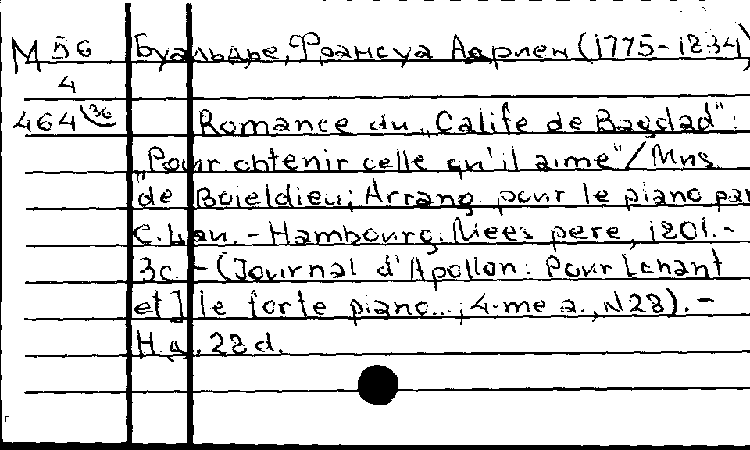 М 56 Буальдье, Франсуа Адриен (1775-1834)
4
464 36 Romance du „Calife de Bagdad":
„Pour obtenir celle qu'il aime" / Mus.
de Boieldieu; Arrang. pour le piano par
C. Lau. - Hambourg: Mees père, 1801. -
3c. - (Journal d'Apollon: Pour [chant
et] le forte piano...; 4-me a., N28). -
Н.д. 28 d.